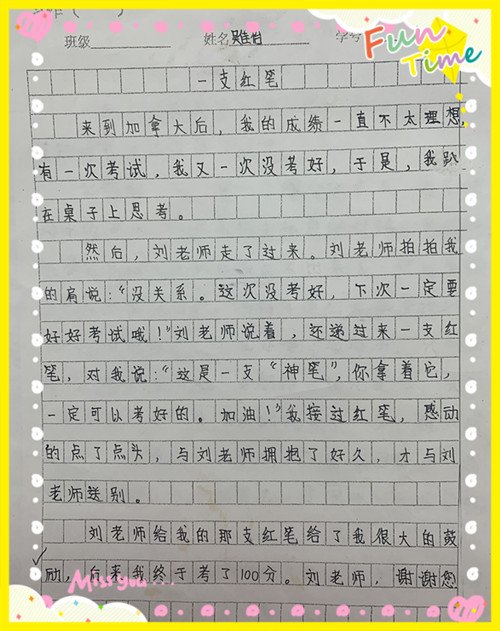 Fun
Time
班级
姓名
学号
一支红笔
来到加拿大后，我的成绩一直不太理想，
有一次考试，我又一次没考好，于是，我趴
在桌子上思考。
然后，刘老师走了过来。刘老师拍拍我
的肩说：“没关系。这次没考好，下次一定要
好好考试哦！”刘老师说着，还递过来一支红
笔，对我说：“这是一支“神笔”，你拿着它，
一定可以考好的。加油！”我接过红笔，感动
的点了点头，与刘老师拥抱了好久，才与刘
老师送别。
刘老师给我的那支红笔给了我很大的鼓
励，后来我终于考了100分。刘老师，谢谢您
Miss you...